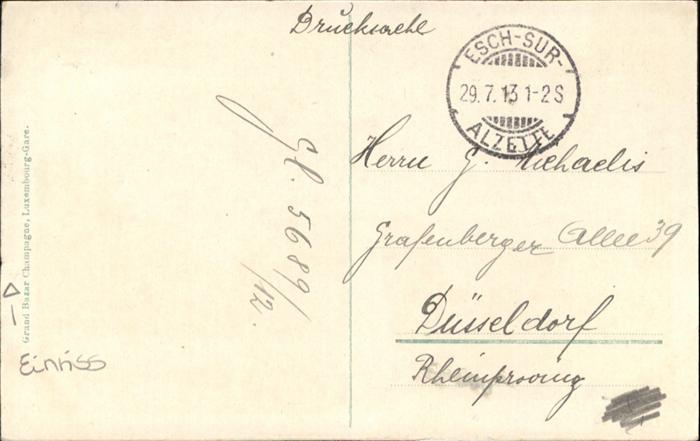 Drucksache
ESCH-SUR-
29.7.13 1-2 S
ALZETTE
Herrn G. Michaelis
Grafenberger Allee 39
Düsseldorf
Rheinprovinz
5689/12.
Grand Bazar Champagne, Luxembourg-Gare.
Einriss